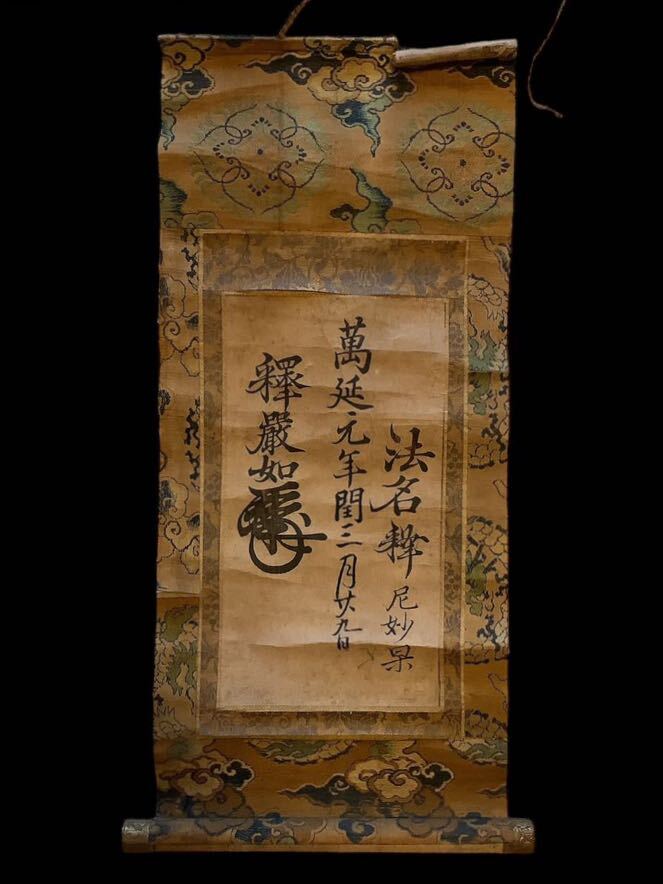 法名釋尼妙杲
萬延元年閏三月廿九日
釋嚴如